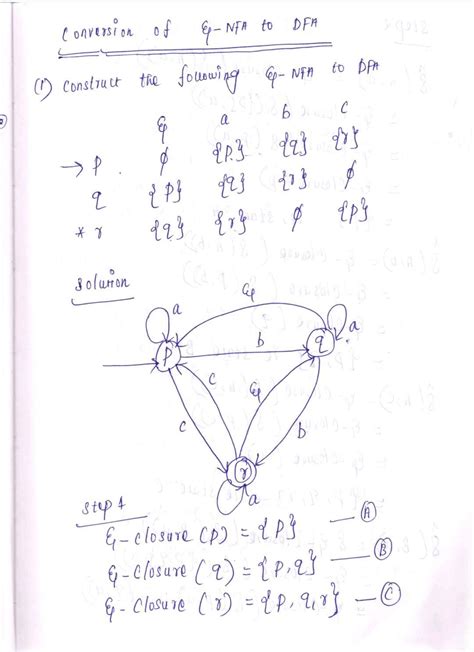 Conversion of ε-NFA to DFA
(1) Construct the following ε-NFA to DFA
ε a b c
→ p. φ {p} {q} {r}
q {p} {q} {r} φ
* r {q} {r} φ {p}
Solution
a ε a
p b q
c c ε b
r
a
Step 1
ε-closure (p) = {p} — A
ε-closure (q) = {p, q} — B
ε-closure (r) = {p, q, r} — C